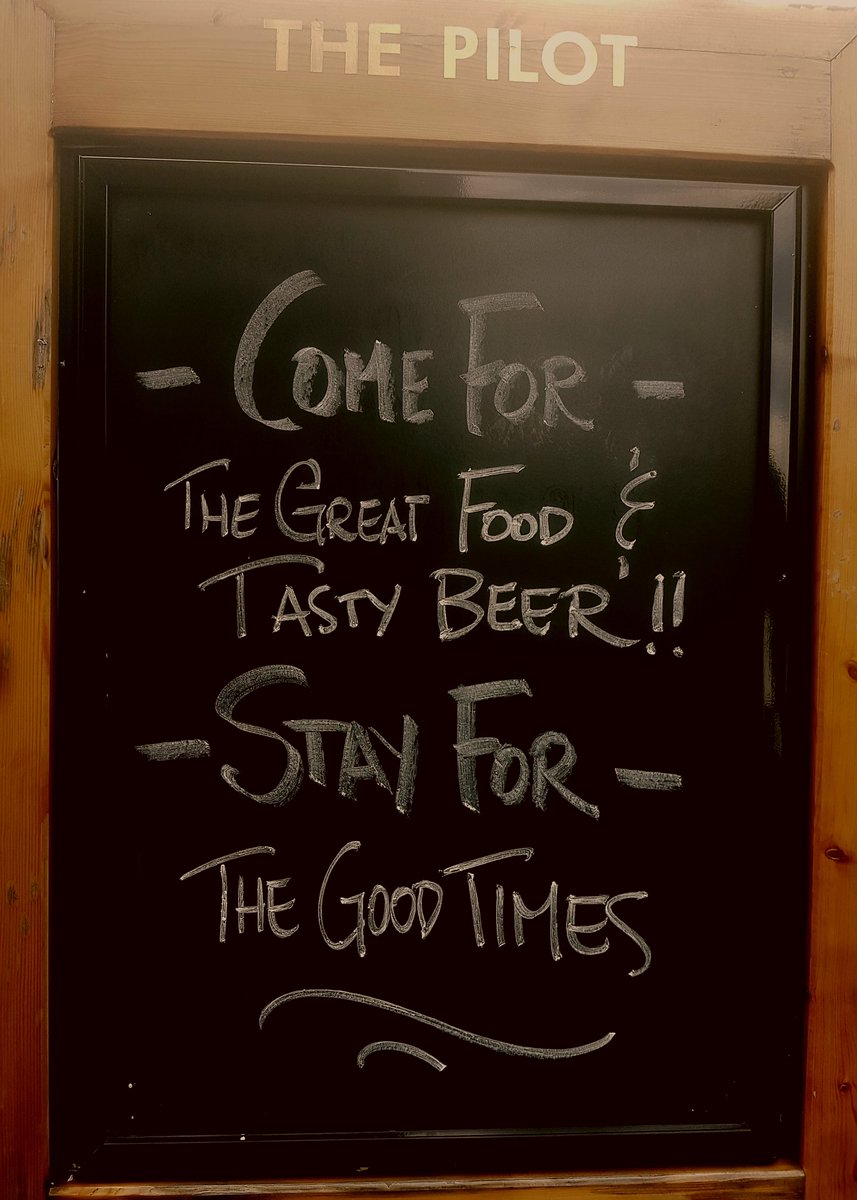 THE PILOT
- COME FOR -
THE GREAT FOOD &
TASTY BEER!!
- STAY FOR -
THE GOOD TIMES